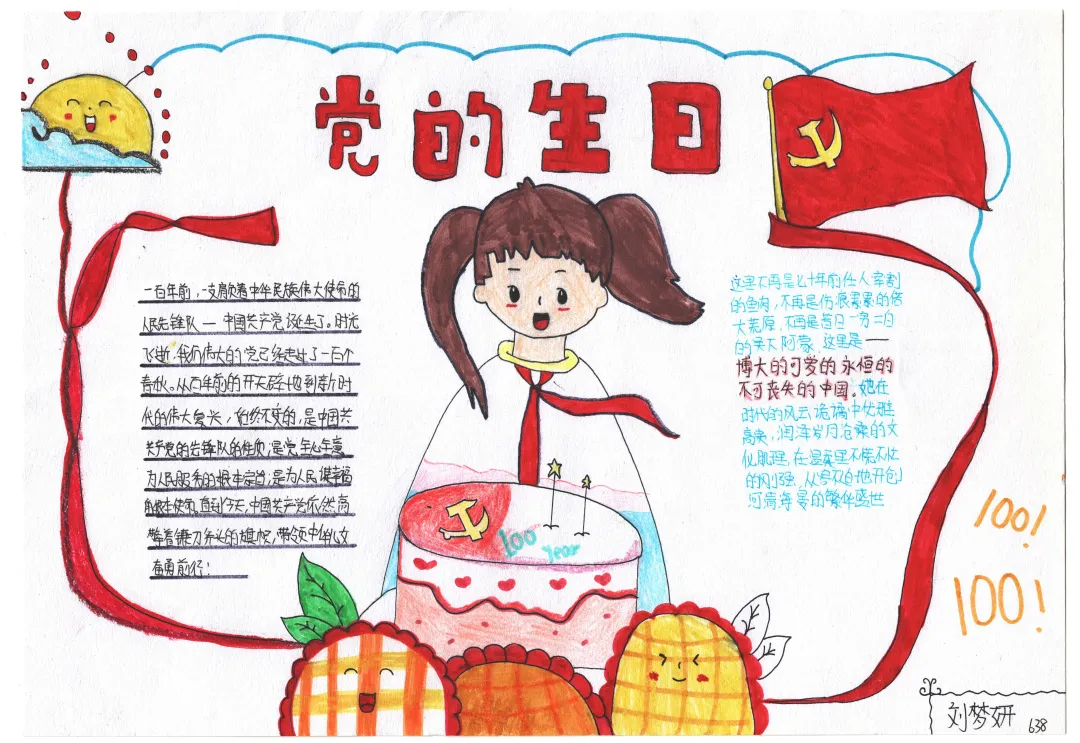 党的生日
一百年前，一支肩负着中华民族伟大使命的
人民先锋队——中国共产党诞生了。时光
飞逝，我们伟大的党已经走过了一百个
春秋。从百年前的开天辟地到新时
代的伟大复兴，始终不变的，是中国共
共产党的先锋队的性质，是党全心全意
为人民服务的根本宗旨，是为人民谋幸福
的根本使命，直到今天，中国共产党依然高
擎着镰刀斧头的旗帜，带领中华儿女
奋勇前行！
100
year
这里不再是七十年前任人宰割
的鱼肉，不再是伤痕累累的偌
大荒原，不再是昔日一穷二白
的吴下阿蒙，这里是——
博大的可爱的永恒的
不可丧失的中国。她在
时代的风云诡谲中优雅
高贵，润泽岁月沧桑的文
化肌理，在温柔里不慌不忙
的刚强，从容不的地开创
河清海晏的繁华盛世
100!
100!
刘梦妍 638